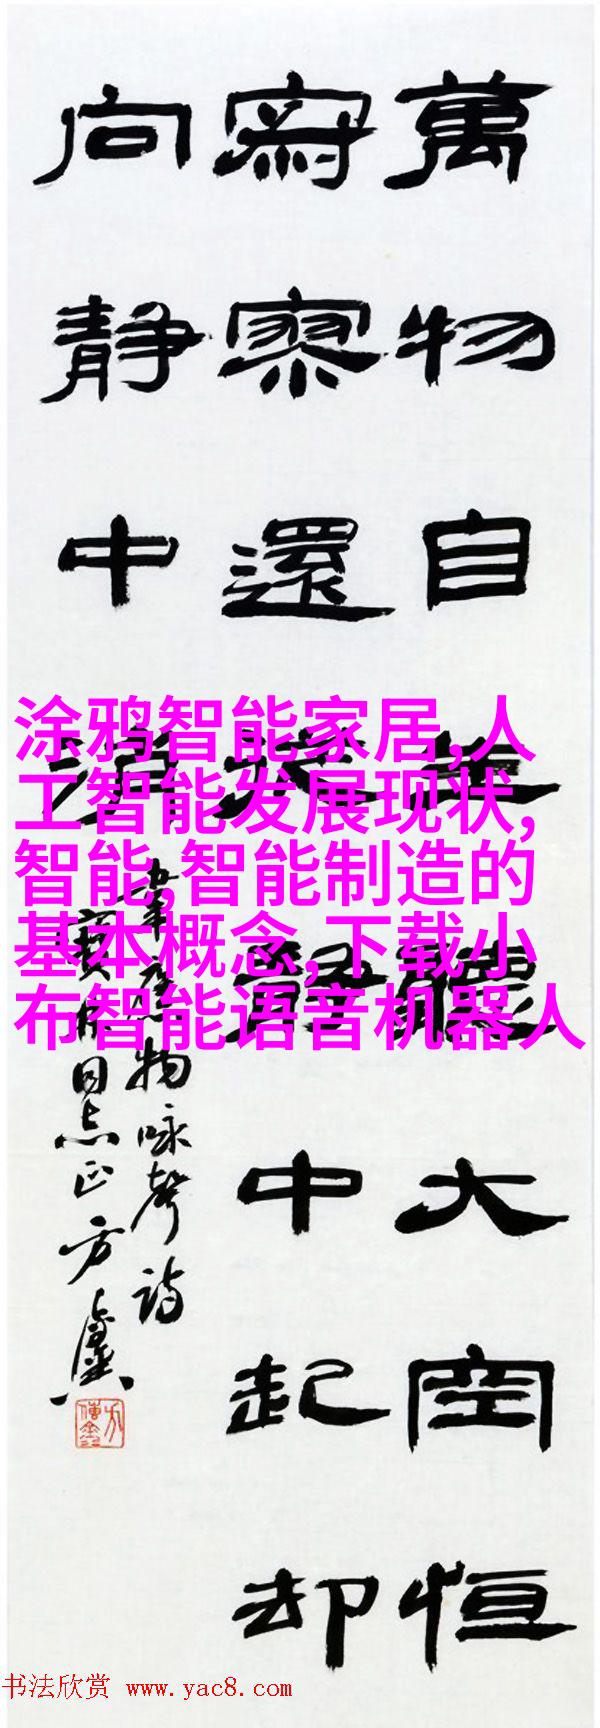 萬物自生聽大空恒
寂寥還從靜中起却
向静中消
韋應物咏聲詩
同志正方
涂鸦智能家居,人
工智能发展现状,
智能,智能制造的
基本概念,下载小
布智能语音机器人
书法欣赏 www.yac8.com